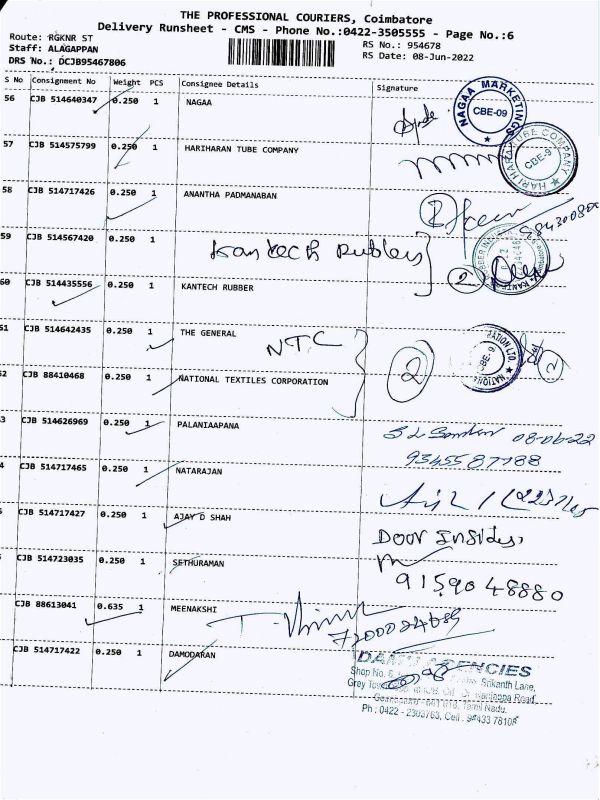 THE PROFESSIONAL COURIERS, Coimbatore
Delivery Runsheet - CMS - Phone No.:0422-3505555 - Page No.:6
Route: RGKNR ST
Staff: ALAGAPPAN
DRS No.: DCJB95467806
RS No.: 954678
RS Date: 08-Jun-2022
S No Consignment No Weight PCS Consignee Details Signature
56 CJB 514640347 0.250 1 NAGAA
NAGAA MARKETINGS CBE-09
57 CJB 514575799 0.250 1 HARIHARAN TUBE COMPANY
HARIHARAN TUBE COMPANY CBE-9
58 CJB 514717426 0.250 1 ANANTHA PADMANABAN
59 CJB 514567420 0.250 1
Kantech Rubbers
60 CJB 514435556 0.250 1 KANTECH RUBBER
2
61 CJB 514642435 0.250 1 THE GENERAL
NTC
2 2
62 CJB 88410468 0.250 1 NATIONAL TEXTILES CORPORATION
3 CJB 514626969 0.250 1 PALANIAAPANA
08-06-22
9345587188
4 CJB 514717465 0.250 1 NATARAJAN
CJB 514717427 0.250 1 AJAY D SHAH
Door Inside,
CJB 514723035 0.250 1 SETHURAMAN
9159048880
CJB 88613041 0.635 1 MEENAKSHI
CJB 514717422 0.250 1 DAMODARAN
AGENCIES
Shop No. Srikanth Lane,
Grey Nanjappa Road,
Tamil Nadu.
Ph : 0422 - 2303763, Cell : 94433 78108